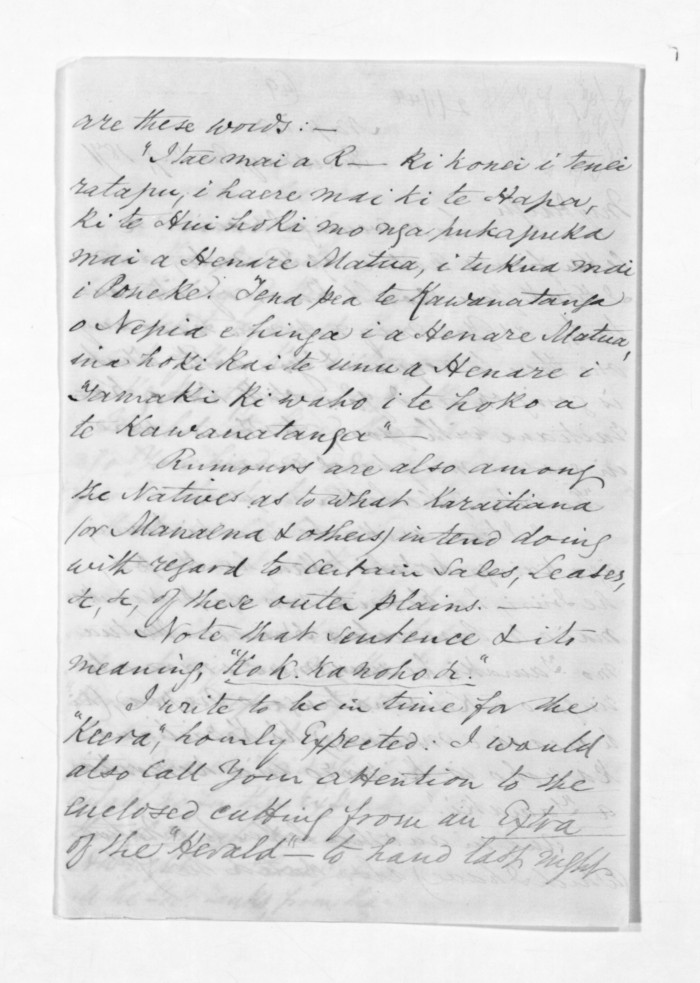 are these words:—
"I tae mai a R— ki konei i tenei
ratapu, i haere mai ki te Hapa,
ki te Hui hoki mo nga pukapuka
mai a Henare Matua, i tukua mai
i Poneke. Tena pea te Kawanatanga
o Nepia e hinga i a Henare Matua,
ina hoki kai te unu a Henare i
Tamaki ki waho i te hoko a
te Kawanatanga"—
Rumours are also among
the Natives as to what Karaitiana
(or Manaena & others) intend doing
with regard to certain Sales, Leases,
&c, &c, of these outer plains.—
Note that sentence & its
meaning, "Ko K. ka noho &c."
I write to be in time for the
"Keera", hourly Expected: I would
also Call Your attention to the
enclosed cutting from an Extra
of the "Herald"— to hand last night